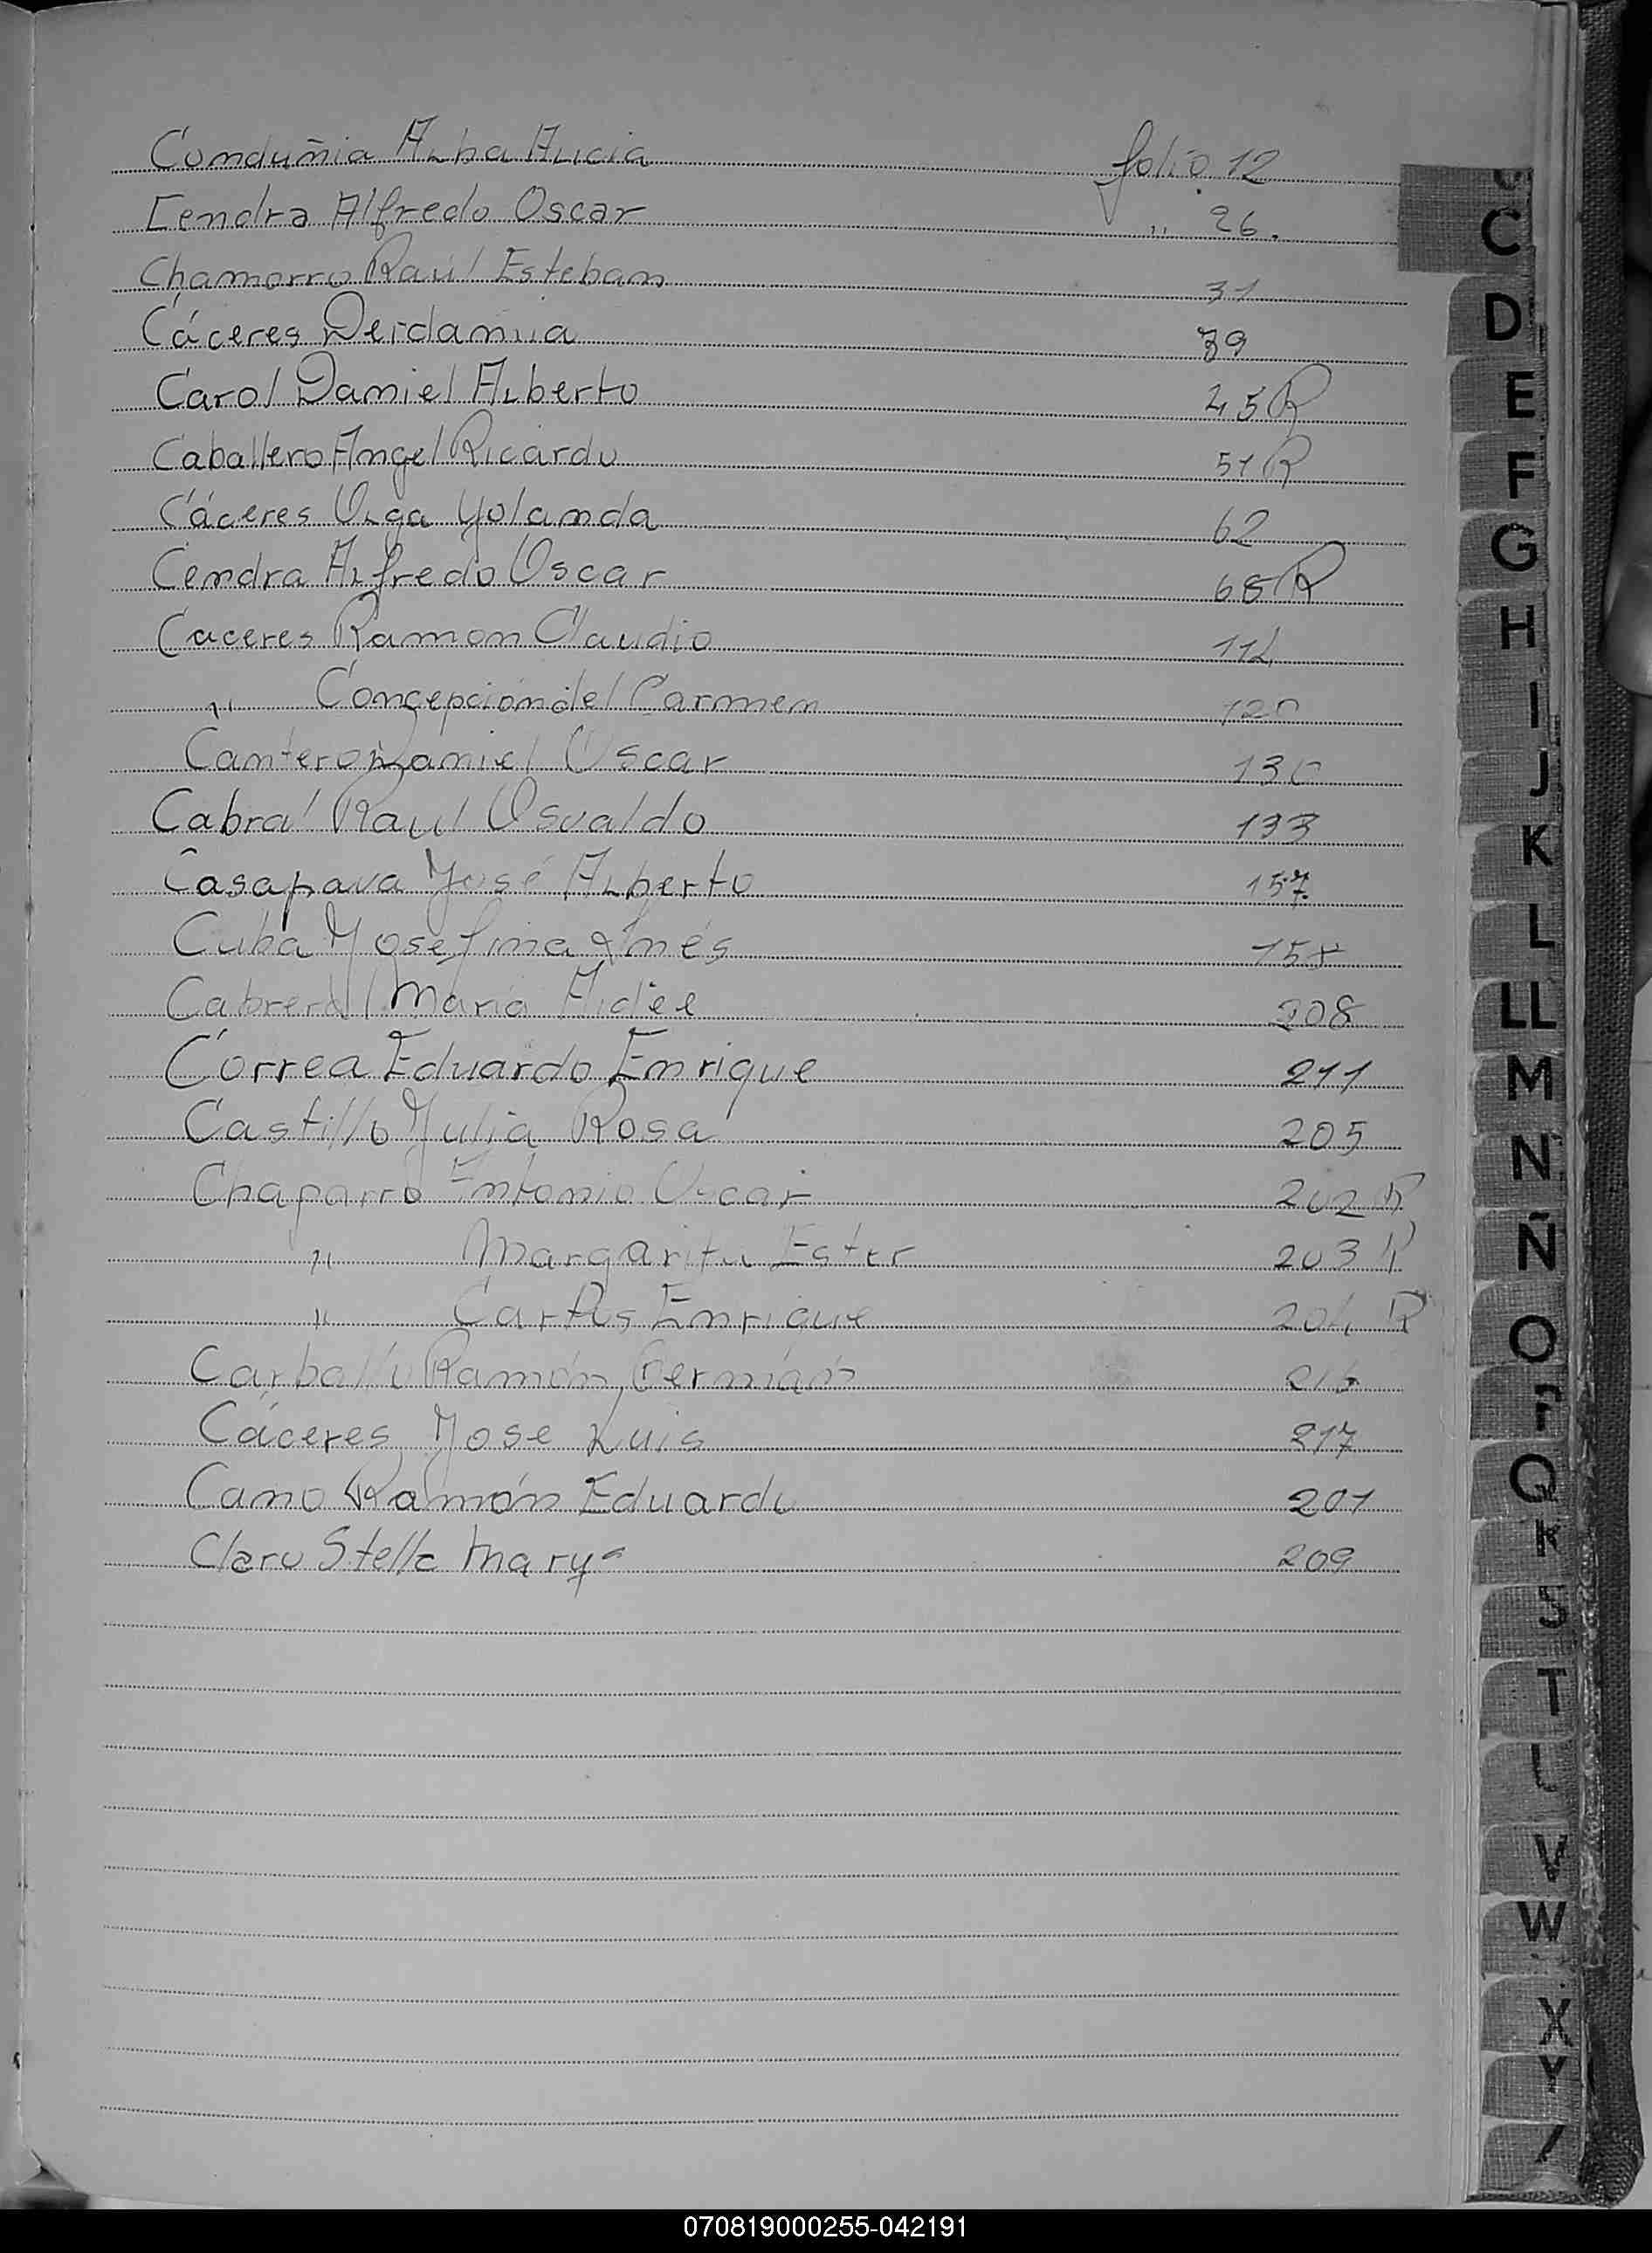 Comduñia Alba Alicia folio 12
Cendra Alfredo Oscar " 26.
Chamorro Raúl Esteban 31
Cáceres Deidamia 39
Carol Daniel Alberto 45 R
Caballero Angel Ricardo 51 R
Cáceres Olga Yolanda 62
Cendra Alfredo Oscar 68 R
Caceres Ramon Claudio 114
" Concepción del Carmen 120
Cantero Damiel Oscar 130
Cabral Raul Osvaldo 133
Casapava José Alberto 157
Cuba Josefina Inés 158
Cabrera Maria Aidée 208
Correa Eduardo Enrique 211
Castillo Julia Rosa 205
Chaparro Antonio Oscar 202 R
" Margarita Ester 203 R
" Carlos Enrique 204 R
Carballo Ramón Germián
Cáceres Jose Luis 217
Cano Ramón Eduardo 201
Claro Stella Marys 209
C
D
E
F
G
H
I
J
K
L
LL
M
N
Ñ
O
P
Q
R
S
T
U
V
W
X
Y
Z
070819000255-042191